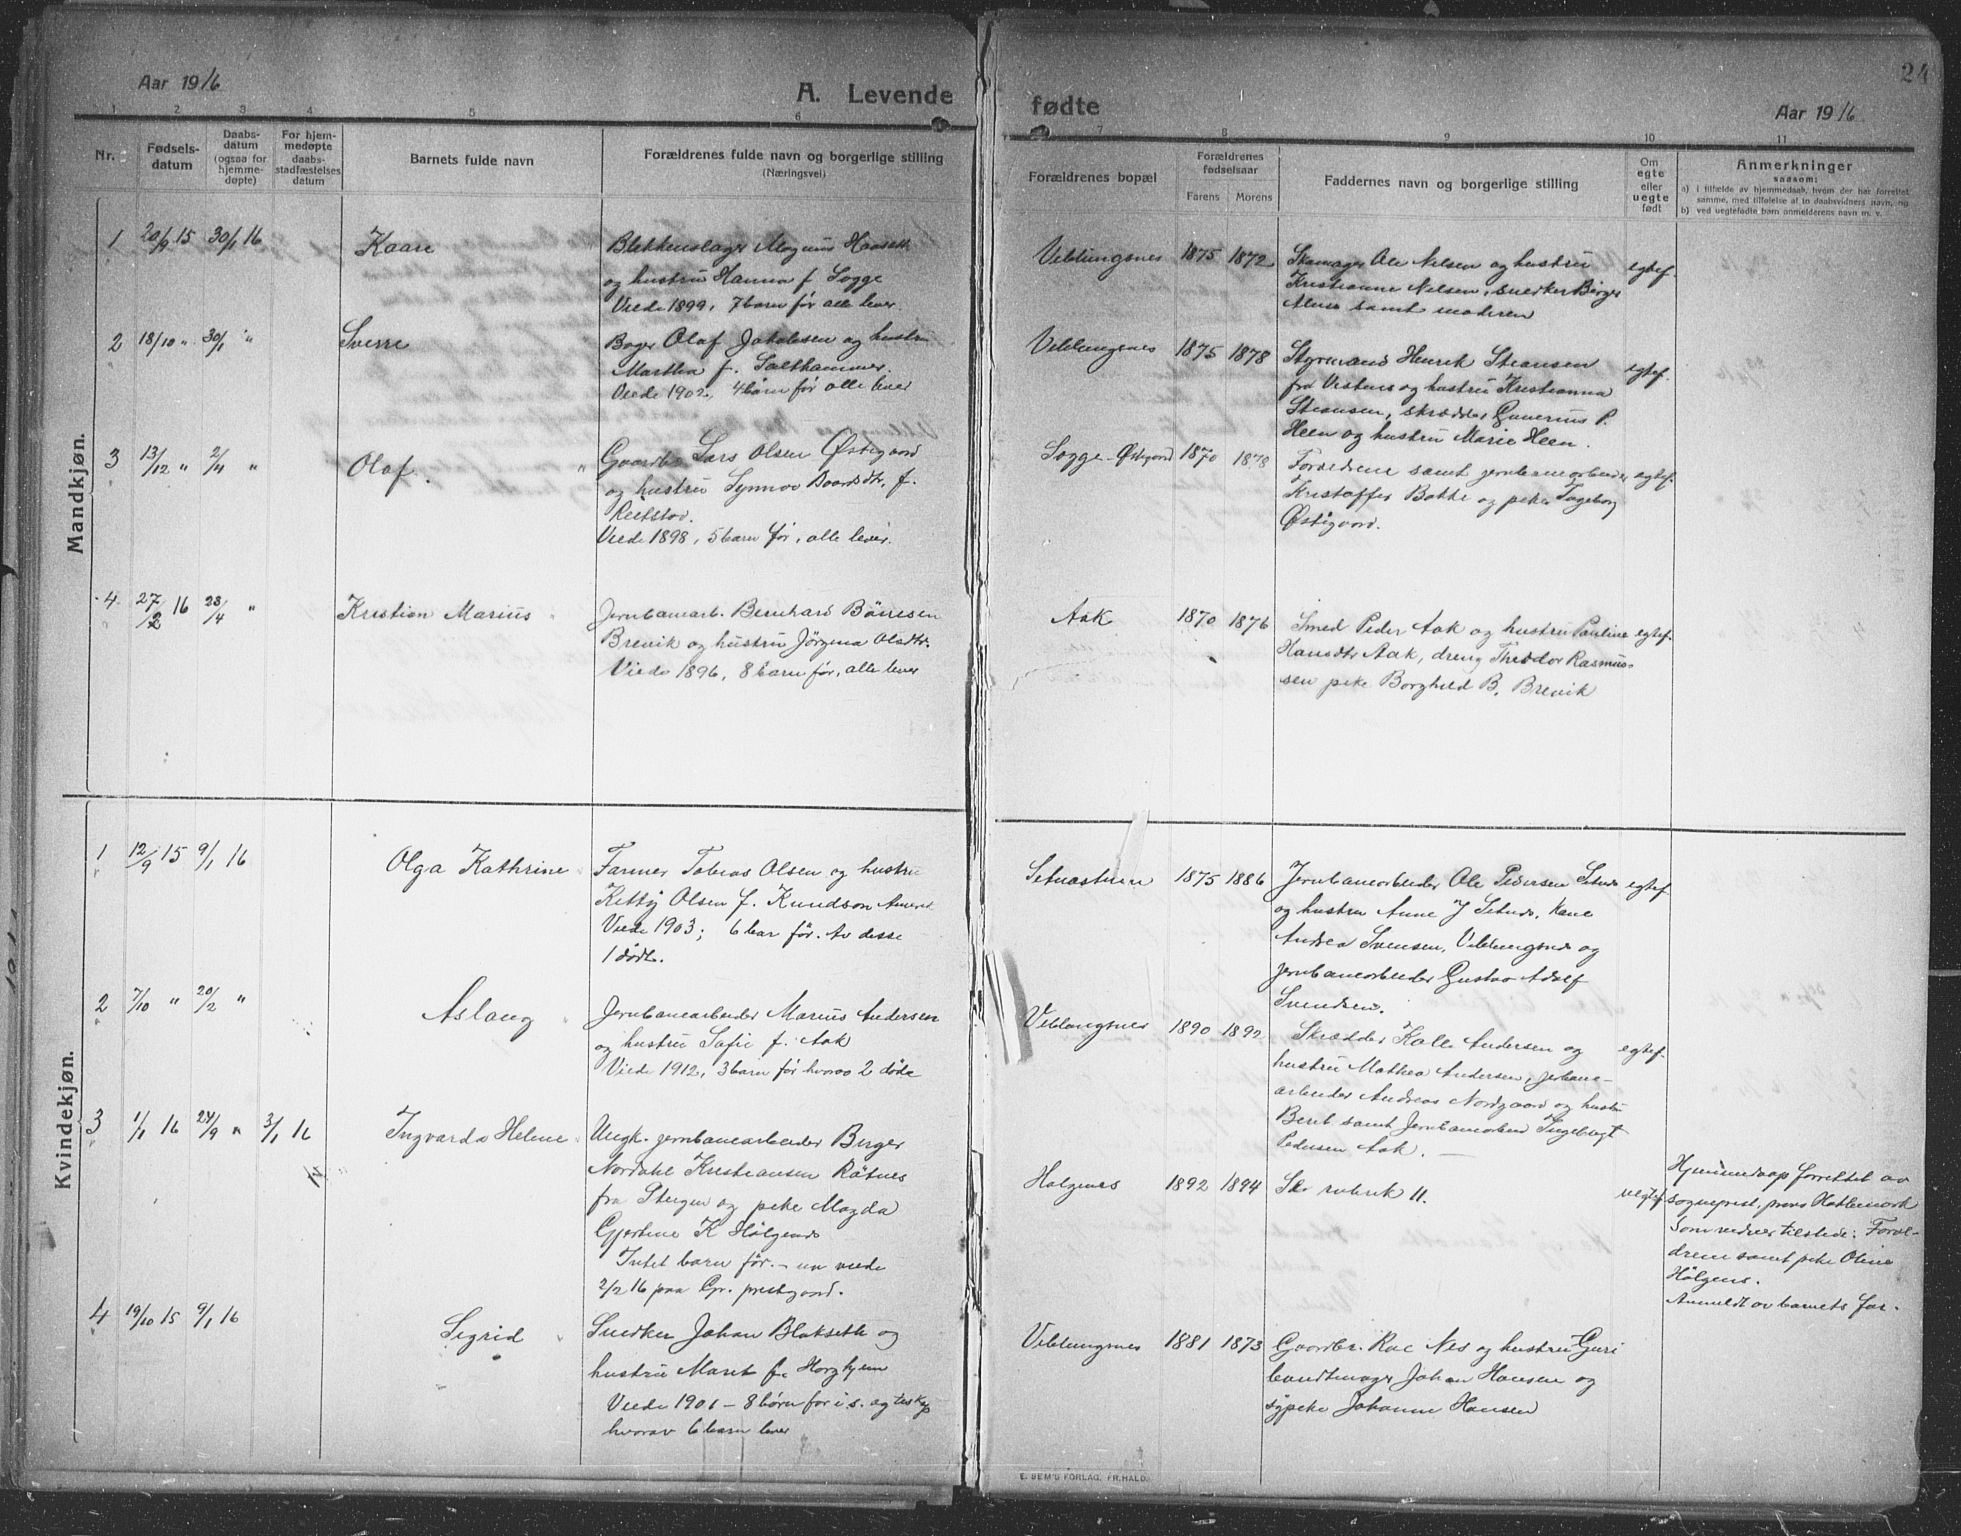 24
Aar 1916
A. Levende
fødte
Aar 1916
1 2 3 4 5 6
7 8 9 10 11
Nr.
Fødsels-
datum
Daabs-
datum
(ogsaa for
hjemme-
døpte)
For hjem-
medøpte
daabs-
stadfæstelses
datum
Barnets fulde navn
Forældrenes fulde navn og borgerlige stilling
(Næringsvei)
Forældrenes bopæl
Forældrenes
fødselsaar
Farens Morens
Faddernes navn og borgerlige stilling
Om
egte
eller
uegte
født
Anmerkninger
saasom:
a) i tilfælde av hjemmedaab, hvem der har forrettet
samme, med tilføielse af to daabsvidners navn, og
b) ved uegtefødte barn anmelderens navn m. v.
Mandkjøn.
1 20/9 15 30/1 16
Kaare
Blikkenslager Magnus
og hustru Hanna f. Sogge
Viede 1899, 7 barn før alle lever
Veblungsnes 1875 1872
Skomager Ole Nilsen og hustru
Kristianne Nilsen, snedker Birger
samt moderen
egtef.
2 18/10 " 30/1 "
Sverre
Bager Olaf Jakobsen og hustru
Martha f. Salthammer.
Viede 1902, 4 barn før alle lever
Veblungsnes 1875 1878
Styrmand Henrik Stensen
fra og hustru Kristianna
Stensen, skrædder Gunerius P.
Heen og hustru Marie Heen.
egtef.
3 13/12 " 2/4 "
Olaf.
Gaardbr. Lars Olsen Østigaard
og hustru Synnøv Baardsdtr. f.
Viede 1898, 5 barn før, alle lever.
Sogge-Østigaard 1870 1878
Forældrene samt jernbanearbeider
Kristoffer og pike Ingeborg
Østigaard.
egtef.
4 27/2 16 23/4 "
Kristian Marius
Jernbanearb. Bernhard Börresen
Brevik og hustru Jörgina Olsdtr.
Viede 1896, 8 barn før, alle lever
Aak 1870 1876
Smed Peder Aak og hustru Pauline
Hansdtr Aak, dreng Theodor Rasmus-
sen pike Borghild B. Brevik
egtef.
Kvindekjøn.
1 12/9 15 9/1 16
Olga Kathrine
Farmer Tobias Olsen og hustru
Kitty Olsen f. Knudson
Viede 1903; 6 bar før. Av disse
1 dødt.
Setnesstrven 1875 1886
Jernbanearbeider Ole Pedersen Setnes
og hustru Anne J Setnes, Kone
Andrea Svensen, Veblungsnes og
jernbanearbeider Gustav Adolf
Svendsen.
egtef
2 7/10 " 20/2 "
Aslaug
Jernbanearbeider Marius Andersen
og hustru Sofie f. Aak
Viede 1912, 3 barn før hvorav 2 døde
Veblungsnes 1890 1892
Skrædder Kalle Andersen og
hustru Mathea Andersen, jerbane-
arbeider Andreas Nordgaard og hustru
Berit samt Jernbanearbeid Ingebregt
Pedersen Aak.
egtef.
3 1/1 16 24/9 " 3/1 16
Ingvarda Helene
Ungk. jernbanearbeider Birger
Nordahl Kristiansen Råtnes
fra Steigen og pike Magda
Gjertine K Hölgenes
Intet barn før. - un viede
2/2 16 paa Gr. prestgaard.
Holgenes 1892 1894
Se rubrik 11.
uegtef.
Hjemmedaap forrettet av
sogneprest, provs Hatlemork
Som vidner tilstede: Foræl-
drene samt pike Oline
Hölgens.
Anmeldt av barnets far.
4 19/10 15 9/1 16
Sigrid
Snedker Johan Blakseth og
hustru Marit f. Horghjem
Viede 1901 - 8 børn før
hvorav 6 barn lever
Veblungsnes 1881 1873
Gaardbr. Nes og hustru Guri
bundtmager Johan Hansen og
sypike Johanne Hansen
E. SEM'S FORLAG, FR.HALD.